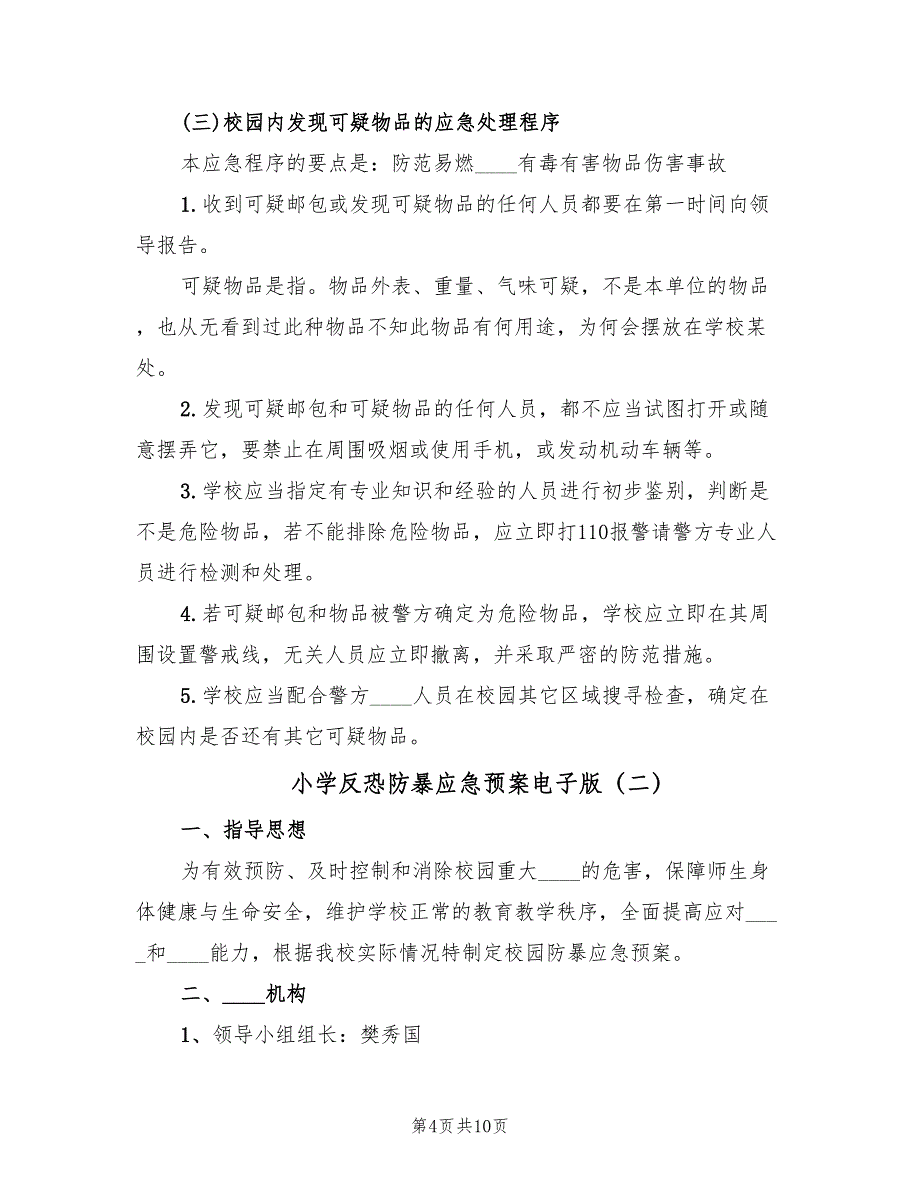 (三)校园内发现可疑物品的应急处理程序
本应急程序的要点是：防范易燃____有毒有害物品伤害事故
1.收到可疑邮包或发现可疑物品的任何人员都要在第一时间向领
导报告。
可疑物品是指。物品外表、重量、气味可疑，不是本单位的物品
，也从无看到过此种物品不知此物品有何用途，为何会摆放在学校某
处。
2.发现可疑邮包和可疑物品的任何人员，都不应当试图打开或随
意摆弄它，要禁止在周围吸烟或使用手机，或发动机动车辆等。
3.学校应当指定有专业知识和经验的人员进行初步鉴别，判断是
不是危险物品，若不能排除危险物品，应立即打110报警请警方专业人
员进行检测和处理。
4.若可疑邮包和物品被警方确定为危险物品，学校应立即在其周
围设置警戒线，无关人员应立即撤离，并采取严密的防范措施。
5.学校应当配合警方____人员在校园其它区域搜寻检查，确定在
校园内是否还有其它可疑物品。
小学反恐防暴应急预案电子版（二）
一、指导思想
为有效预防、及时控制和消除校园重大____的危害，保障师生身
体健康与生命安全，维护学校正常的教育教学秩序，全面提高应对___
_和____能力，根据我校实际情况特制定校园防暴应急预案。
二、____机构
1、领导小组组长：樊秀国
第4页共10页